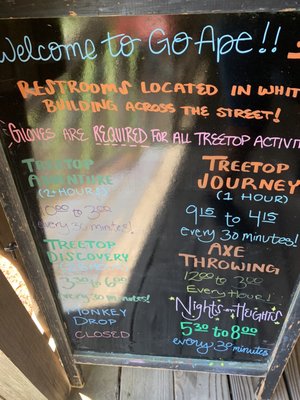 Welcome to Go Ape!!
RESTROOMS LOCATED IN WHIT
BUILDING ACROSS THE STREET!
GLOVES ARE REQUIRED FOR ALL TREETOP ACTIVIT
TREETOP
ADVENTURE
(2+ HOURS)
to 3⁰⁰
every 30 minutes!
TREETOP
DISCOVERY
3³⁰ to 6⁰⁰
every 30 minutes!
MONKEY
DROP
CLOSED
TREETOP
JOURNEY
(1 HOUR)
9¹⁵ to 4¹⁵
every 30 minutes!
AXE
THROWING
12⁰⁰ to 3⁰⁰
Every Hour!
Nights at Heights
5³⁰ to 8⁰⁰
every 30 minutes